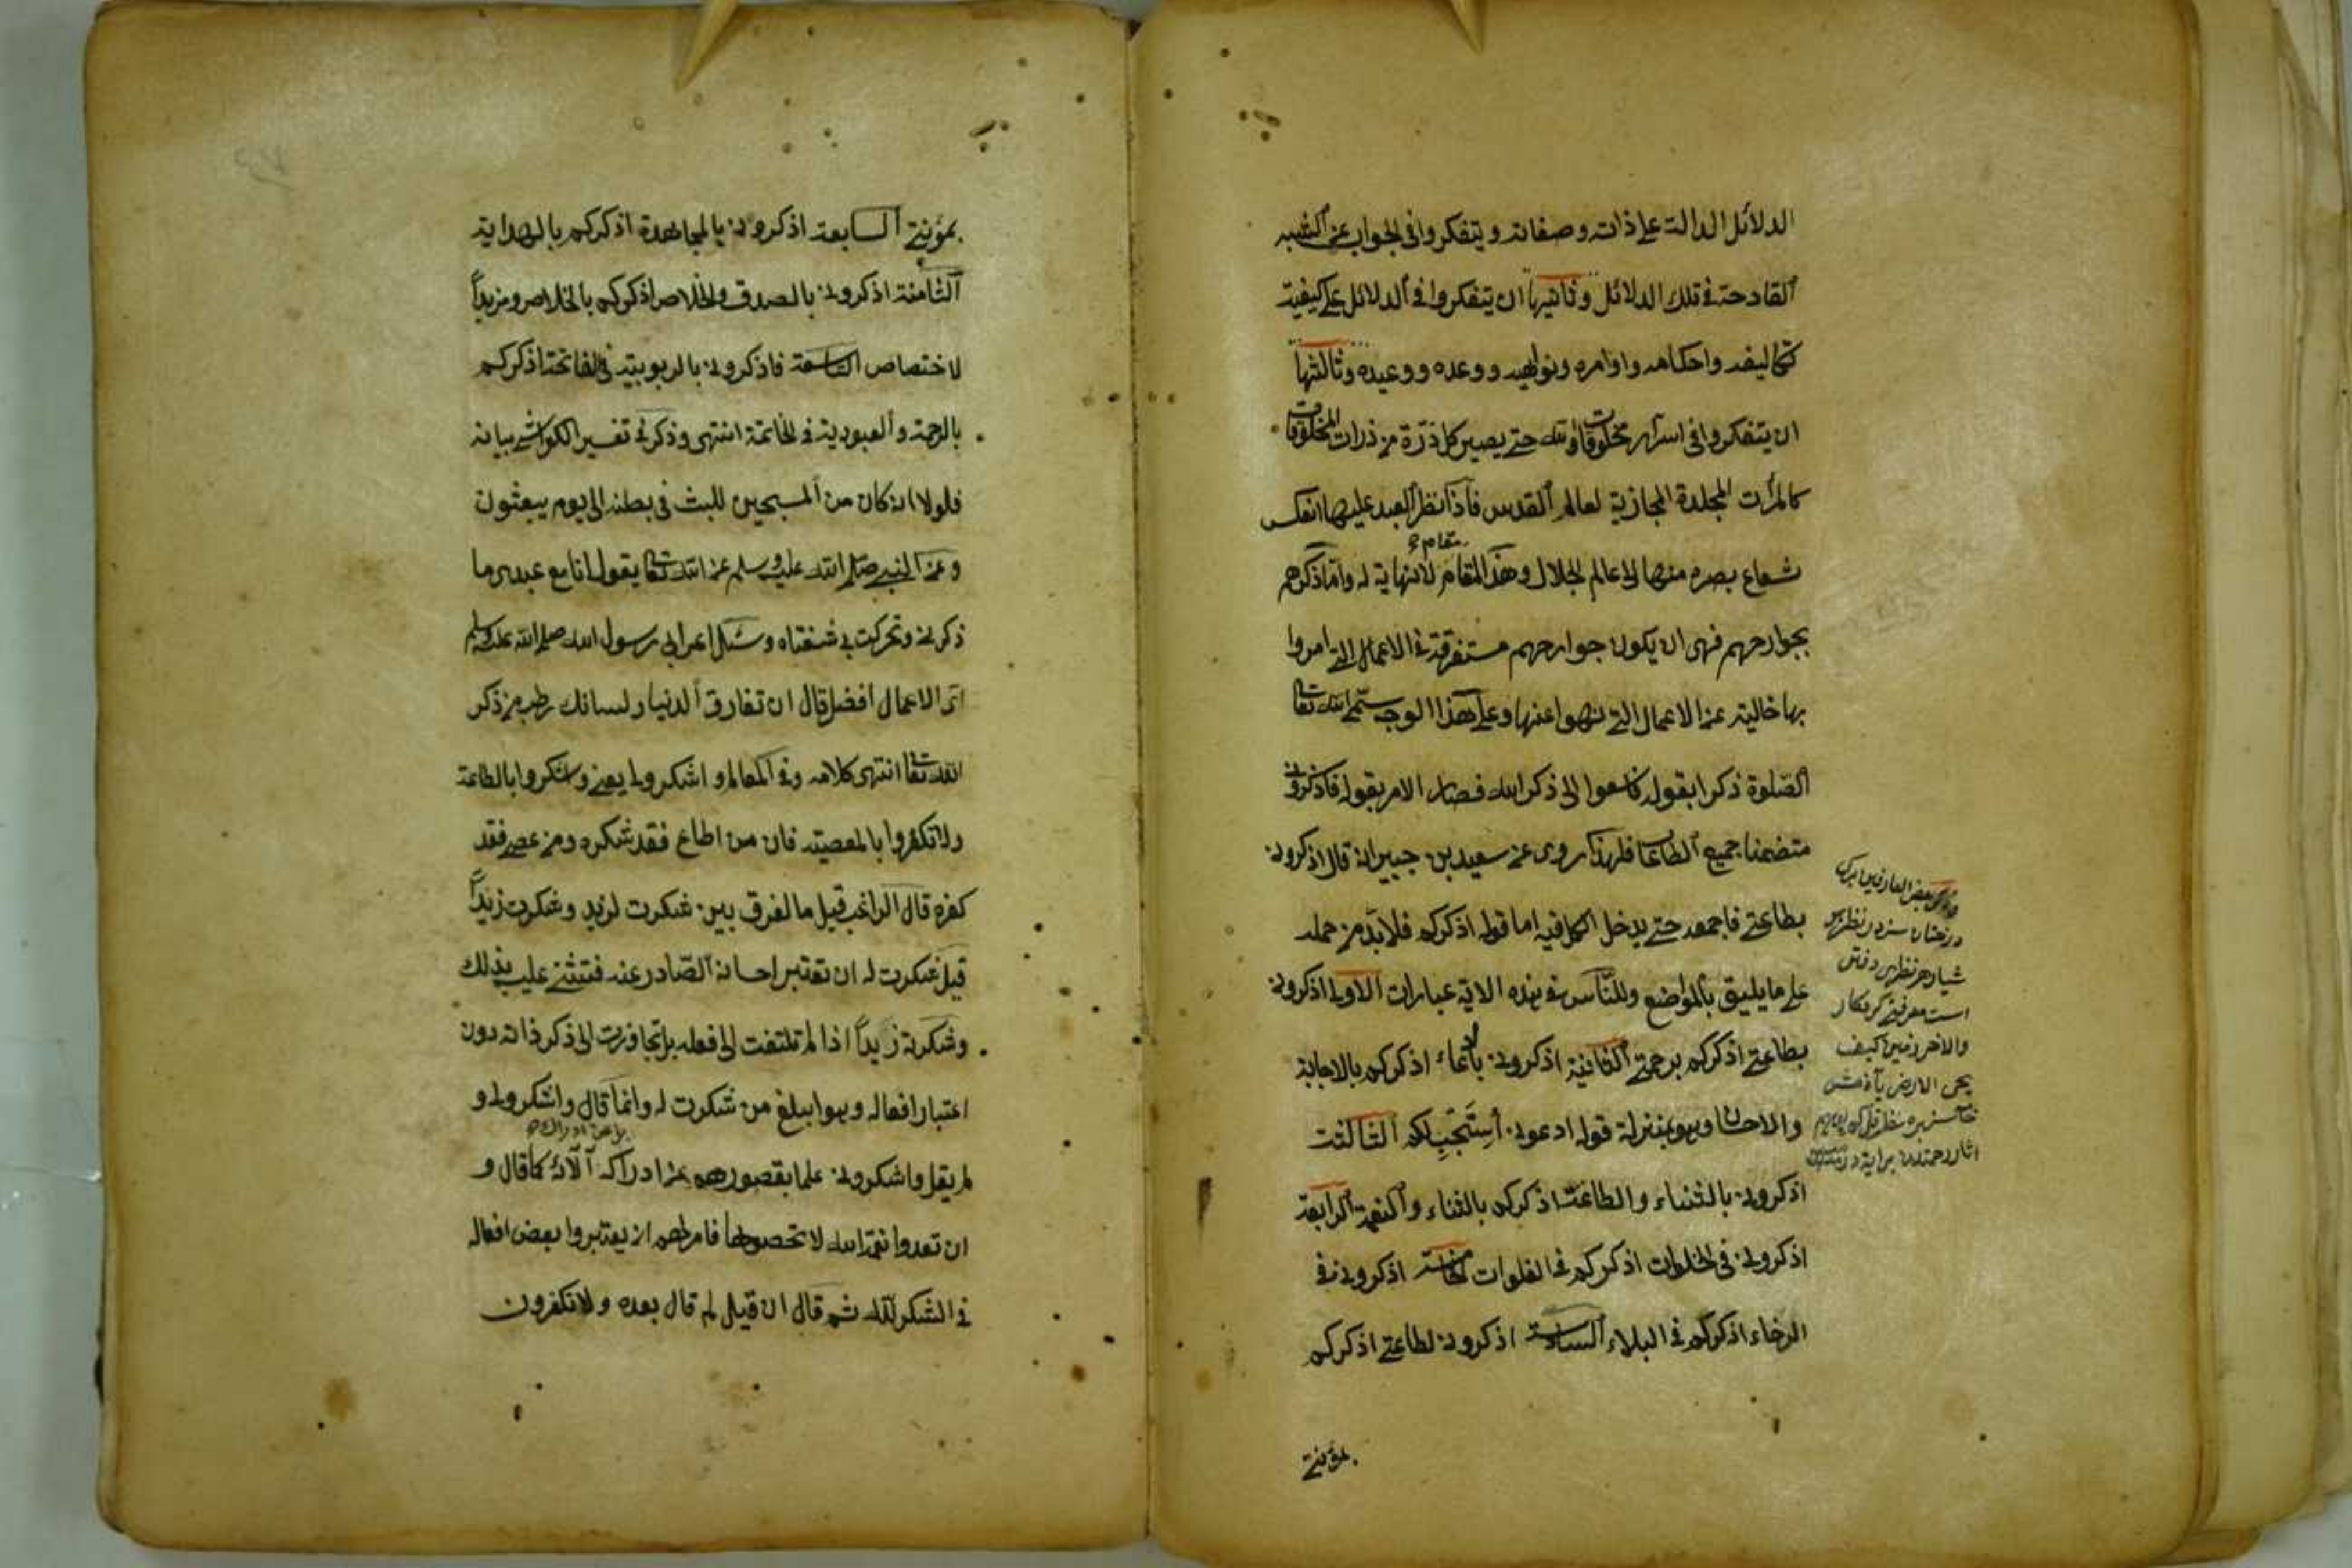 الدلائل الدالة على ذاته وصفاته ويتفكروا فى الجواب عن الشبه
القادحة فى تلك الدلائل وثانيها ان يتفكروا فى الدلائل على كيفية
تكاليفه واحكامه واوامره ونواهيه ووعده ووعيده وثالثها
ان يتفكروا فى اسرار مخلوقات الله حتى يصير كل ذرة من ذرات المخلوقات
كالمرآت المجلدة المجازية لعالم القدس فاذا نظر العبد عليها انعكس
شعاع بصره منها الى عالم الجلال وهذا المقام لا نهاية له واما ذكرهم
مقام
بجوارحهم فهى ان يكون جوارحهم مستغرقة فى الاعمال التى امروا
بها خالية عن الاعمال التى نهوا عنها وعلى هذا الوجه سمى الله تعا
الصلوة ذكرا بقوله فاسعوا الى ذكر الله فصار الامر بقوله فاذكرونى
متضمنا جميع الطاعا فلهذا روى عن سعيد بن جبير انه قال اذكرونى
بطاعتى فاجمعه حتى يدخل الكل فيه اما قوله اذكركم فلا بد من حمله
على ما يليق بالمواضع وللناس فى هذه الاية عبارات الاولى اذكرونى
بطاعتى اذكركم برحمتى الثانية اذكرونى بالدعاء اذكركم بالاجابة
والاحسان وهو بمنزلة قوله ادعونى استجب لكم الثالثة
اذكرونى بالثناء والطاعة اذكركم بالثناء والنعمة الرابعة
اذكرونى فى الخلوات اذكركم فى الفلوات الخامسة اذكرونى فى
الرخاء اذكركم فى البلاء السادسة اذكرونى لطاعتى اذكركم
بعض العارفين
درختان سبز در نظر
هر نظرى دفتى
است معرفت كردكار
والاخر زمين كيف
يحى الارض
بمؤنتى
بمؤنتى السابعة اذكرونى بالمجاهدة اذكركم بالهداية
الثامنة اذكرونى بالصدق والاخلاص اذكركم بالخلاص ومزيداً
لاختصاص التاسعة فاذكرونى بالربوبية فى الفاتحة اذكركم
بالرحمة والعبودية فى الخاتمة انتهى وذكر فى تفسير الكواشى بيانه
فلولا انه كان من المسبحين للبث فى بطنه الى يوم يبعثون
وعن النبى صلى الله عليه وسلم عن الله تعا يقول انا مع عبدى ما
ذكرنى وتحركت بى شفتاه وسئل اعرابى رسول الله صلى الله عليه وسلم
اى الاعمال افضل قال ان تفارق الدنيا ولسانك رطب من ذكر
الله تعا انتهى كلامه وفى المعالم واشكروا لى يعنى واشكروا بالطاعة
ولا تكفروا بالمعصية فان من اطاع فقد شكره ومن عصى فقد
كفره قال الراغب قيل ما الفرق بين شكرت لزيد وشكرت زيداً
قيل شكرت له ان تعتبر احسانه الصادر عنه فتثنى عليه بذلك
وشكرت زيداً اذا لم تلتفت الى فعله بل تجاوزت الى ذكر ذاته دون
اعتبار افعاله وهو ابلغ من شكرت له وانما قال واشكروا لى و
لم يقل واشكرونى علما بقصورهم عن ادراكه آلائه كما قال و
ان تعدوا نعمة الله لا تحصوها فامرهم ان يعتبروا بعض افعاله
فى الشكر لله ثم قال ان قيل لم قال بعده ولا تكفرون